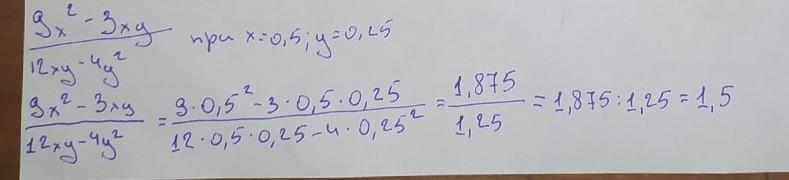 (9x² - 3xy)/(12xy - 4y²) при x=0,5; y=0,25
(9x² - 3xy)/(12xy - 4y²) = (9·0,5² - 3·0,5·0,25)/(12·0,5·0,25 - 4·0,25²) = 1,875/1,25 = 1,875:1,25 = 1,5